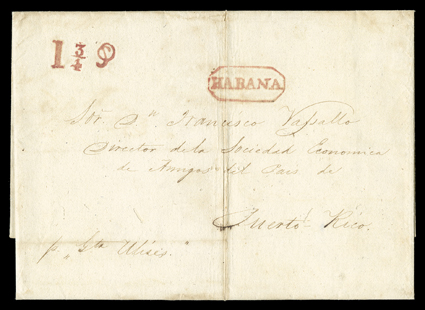 1 3/4 9
HABANA
Sor. Dn. Francisco Vassallo
Director de la Sociedad Economica
de Amigos del Pais de
Puerto Rico.
p. Gta Ulises.